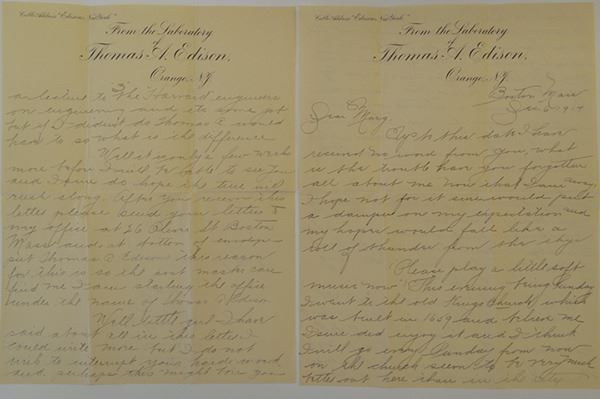 Cable Address "Edison, New York"
From the Laboratory
of
Thomas A. Edison,
Orange, N.J.
3
a lecture to the Harvard engineers
on engineering and its some job
but if I didn't do Thomas A would
have to so what is the difference
Well it is only a few weeks
more before I will be able to see you
and I sure do hope the time will
rush along. After you receive this
letter please send your letters to
my office at 26 Olive St Boston
Mass and at bottom of envelope
put Thomas A Edison this reason
for this is so the post master can
find me I am starting the office
under the name of Thomas A Edison
Well little girl I have
said about all in this letter I
could write more but I do not
wish to interrupt your hard work
and perhaps this might bore you
Cable Address "Edison, New York"
From the Laboratory
of
Thomas A. Edison,
Orange, N.J.
Boston Mass
Dear Mary,
Up to this date I have
received no word from you, what
is the trouble have you forgotten
all about me now that I am away,
I hope not for it sure would put
a damper on my expectation and
my hopes would fall like a
roll of thunder from the skys
Please play a little soft
music now This evening being Sunday
I went to the old Kings Church which
was built in 1669 and believe me
I sure did enjoy it and I think
I will go every Sunday from now
on the church seems to be very much
better out here than in the city